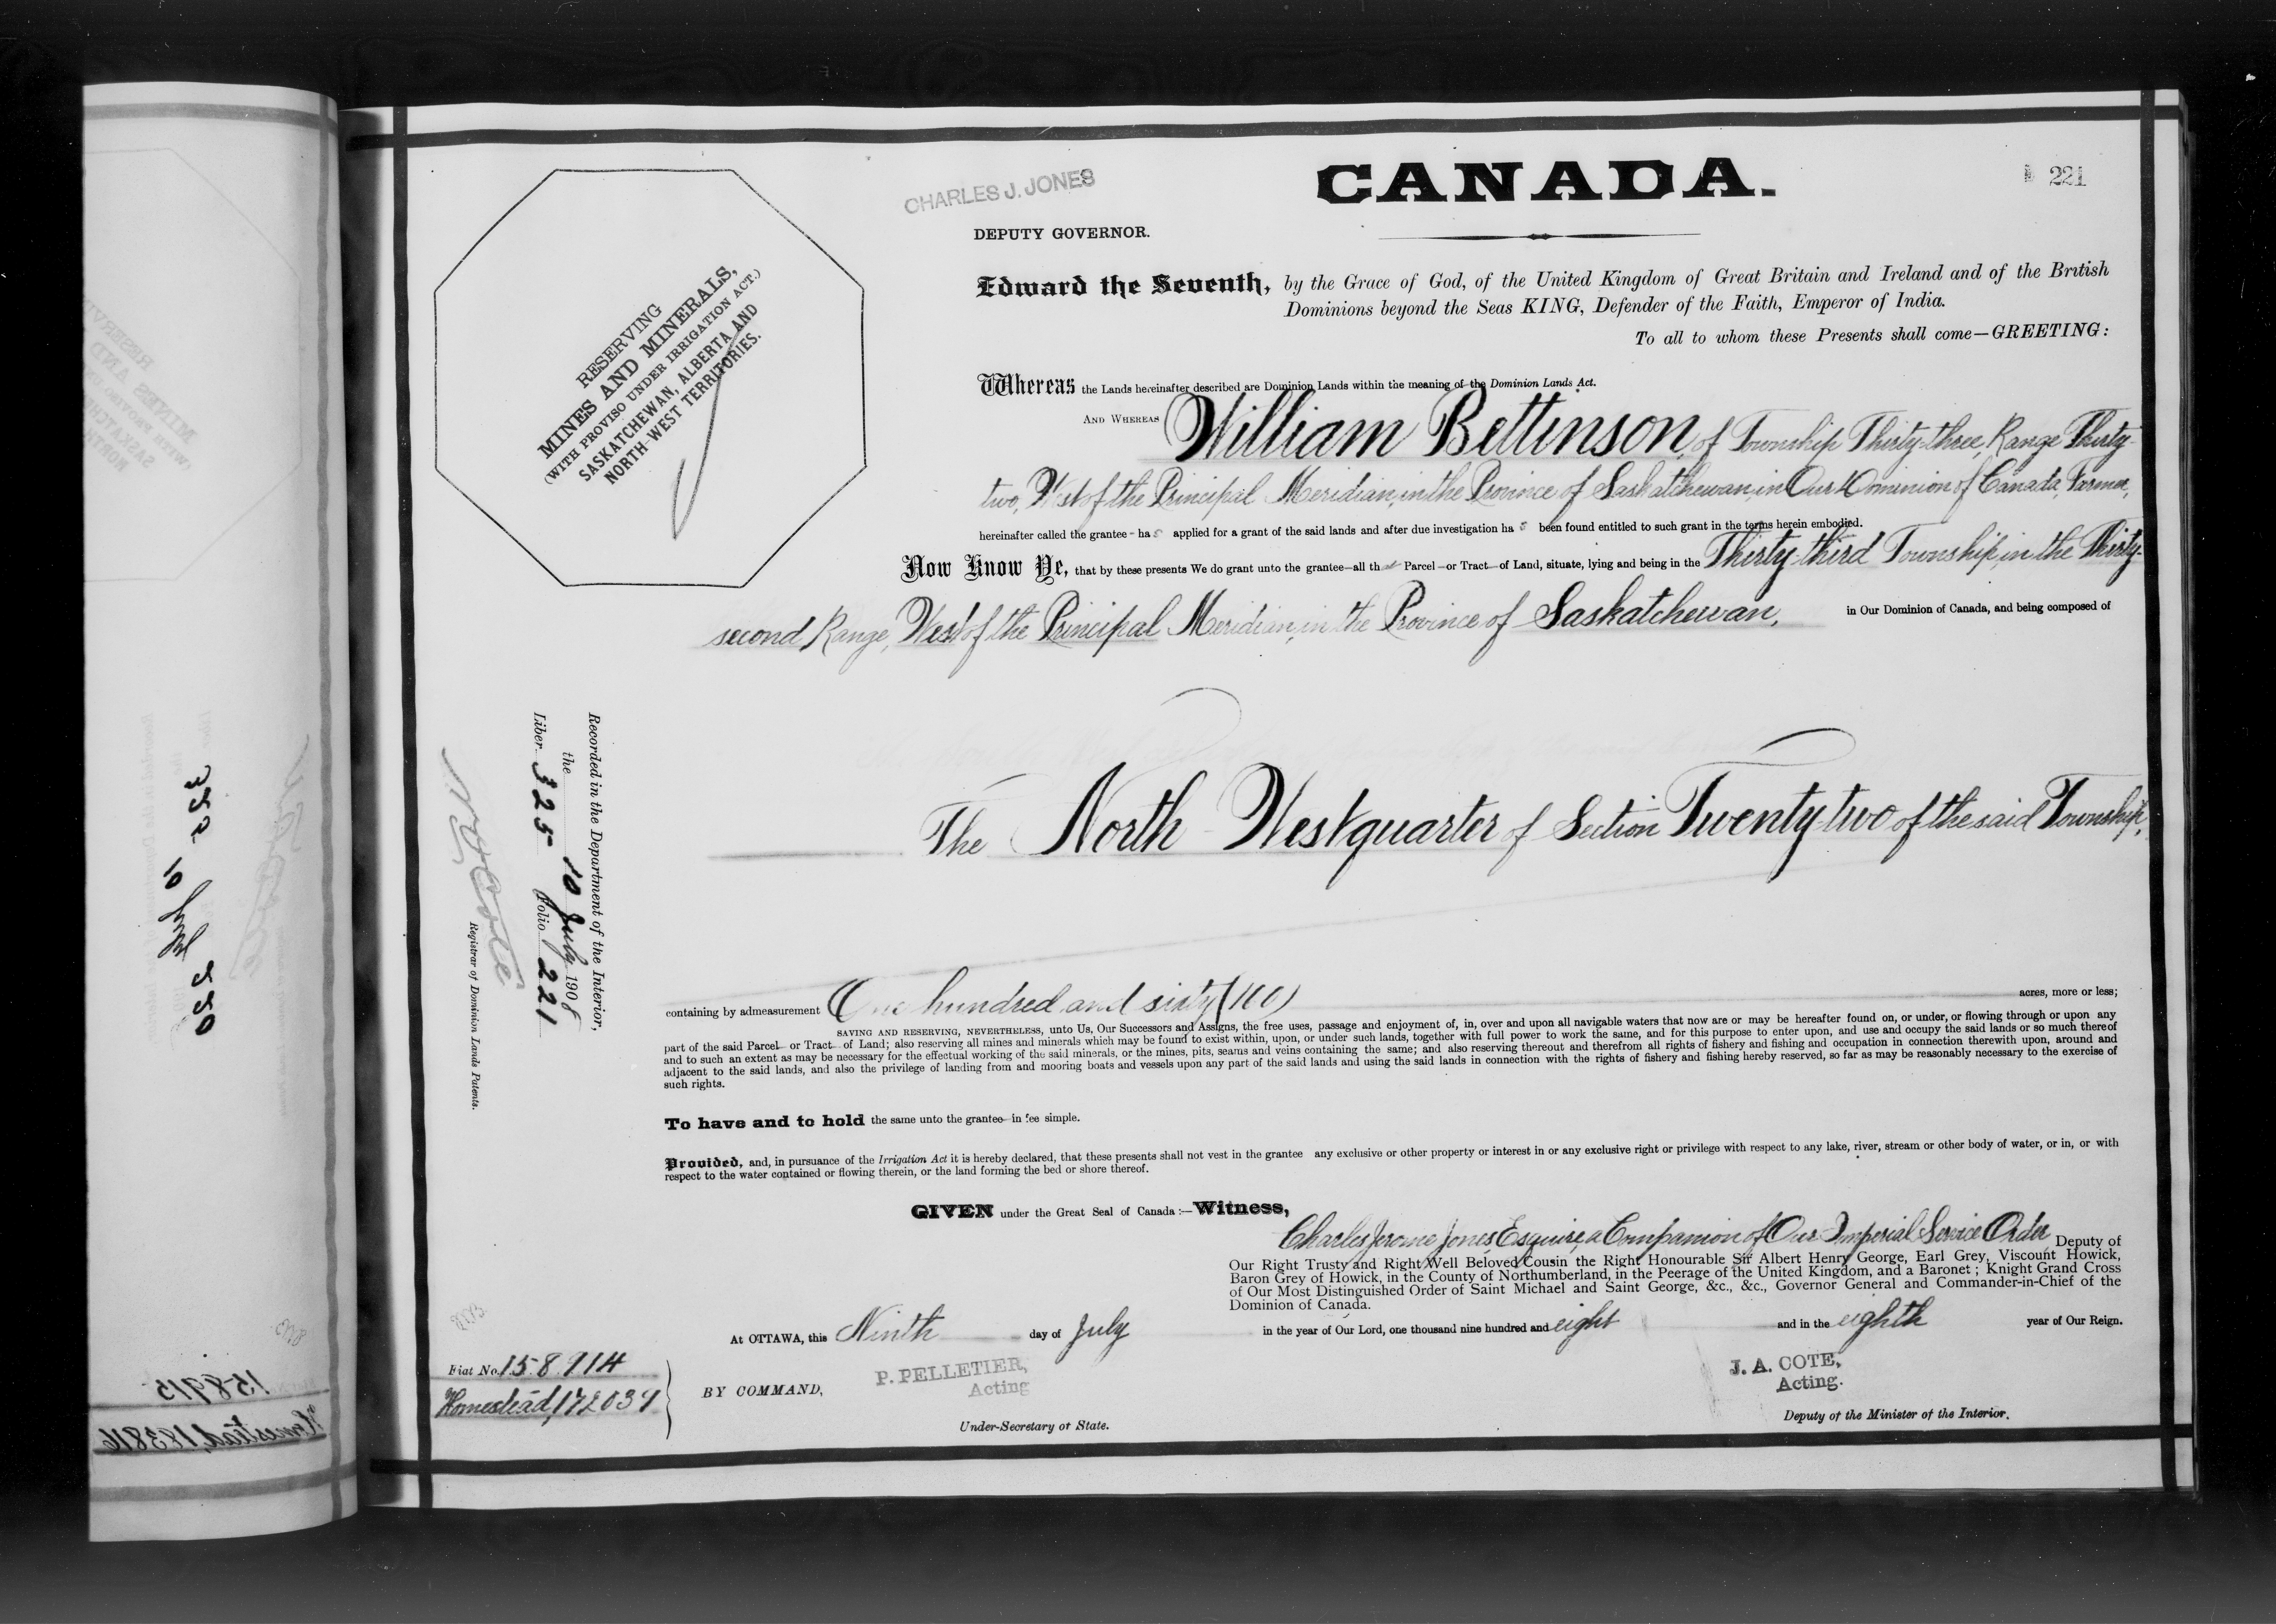 CANADA.
221
CHARLES J. JONES
DEPUTY GOVERNOR.
RESERVING
MINES AND MINERALS,
(WITH PROVISO UNDER IRRIGATION ACT.)
SASKATCHEWAN, ALBERTA AND
NORTH-WEST TERRITORIES.
Edward the Seventh, by the Grace of God, of the United Kingdom of Great Britain and Ireland and of the British
Dominions beyond the Seas KING, Defender of the Faith, Emperor of India.
To all to whom these Presents shall come—GREETING:
Whereas the Lands hereinafter described are Dominion Lands within the meaning of the Dominion Lands Act.
AND WHEREAS William Bettinson, of Township Thirty-three, Range Thirty-
two, West of the Principal Meridian, in the Province of Saskatchewan, in Our Dominion of Canada, Farmer,
hereinafter called the grantee - has applied for a grant of the said lands and after due investigation has been found entitled to such grant in the terms herein embodied.
Now Know Ye, that by these presents We do grant unto the grantee—all that Parcel—or Tract—of Land, situate, lying and being in the Thirty-third Township, in the Thirty-
second Range, West of the Principal Meridian, in the Province of Saskatchewan, in Our Dominion of Canada, and being composed of
The North-West quarter of Section Twenty-two of the said Township,
containing by admeasurement One hundred and sixty (160) acres, more or less;
SAVING AND RESERVING, NEVERTHELESS, unto Us, Our Successors and Assigns, the free uses, passage and enjoyment of, in, over and upon all navigable waters that now are or may be hereafter found on, or under, or flowing through or upon any
part of the said Parcel—or Tract—of Land; also reserving all mines and minerals which may be found to exist within, upon, or under such lands, together with full power to work the same, and for this purpose to enter upon, and use and occupy the said lands or so much thereof
and to such an extent as may be necessary for the effectual working of the said minerals, or the mines, pits, seams and veins containing the same; and also reserving thereout and therefrom all rights of fishery and fishing and occupation in connection therewith upon, around and
adjacent to the said lands, and also the privilege of landing from and mooring boats and vessels upon any part of the said lands and using the said lands in connection with the rights of fishery and fishing hereby reserved, so far as may be reasonably necessary to the exercise of
such rights.
To have and to hold the same unto the grantee—in fee simple.
Provided, and, in pursuance of the Irrigation Act it is hereby declared, that these presents shall not vest in the grantee any exclusive or other property or interest in or any exclusive right or privilege with respect to any lake, river, stream or other body of water, or in, or with
respect to the water contained or flowing therein, or the land forming the bed or shore thereof.
GIVEN under the Great Seal of Canada:—Witness,
Charles Jerome Jones, Esquire, a Companion of Our Imperial Service Order, Deputy of
Our Right Trusty and Right Well Beloved Cousin the Right Honourable Sir Albert Henry George, Earl Grey, Viscount Howick,
Baron Grey of Howick, in the County of Northumberland, in the Peerage of the United Kingdom, and a Baronet; Knight Grand Cross
of Our Most Distinguished Order of Saint Michael and Saint George, &c., &c., Governor General and Commander-in-Chief of the
Dominion of Canada.
At OTTAWA, this Ninth day of July in the year of Our Lord, one thousand nine hundred and eight and in the eighth year of Our Reign.
BY COMMAND,
P. PELLETIER,
Acting
Under-Secretary of State.
J. A. COTE,
Acting.
Deputy of the Minister of the Interior.
Recorded in the Department of the Interior,
the 10 July 1908
Liber 325 Folio 221
N. O. Coté
Registrar of Dominion Lands Patents.
Fiat No. 158914
Homestead, 172039